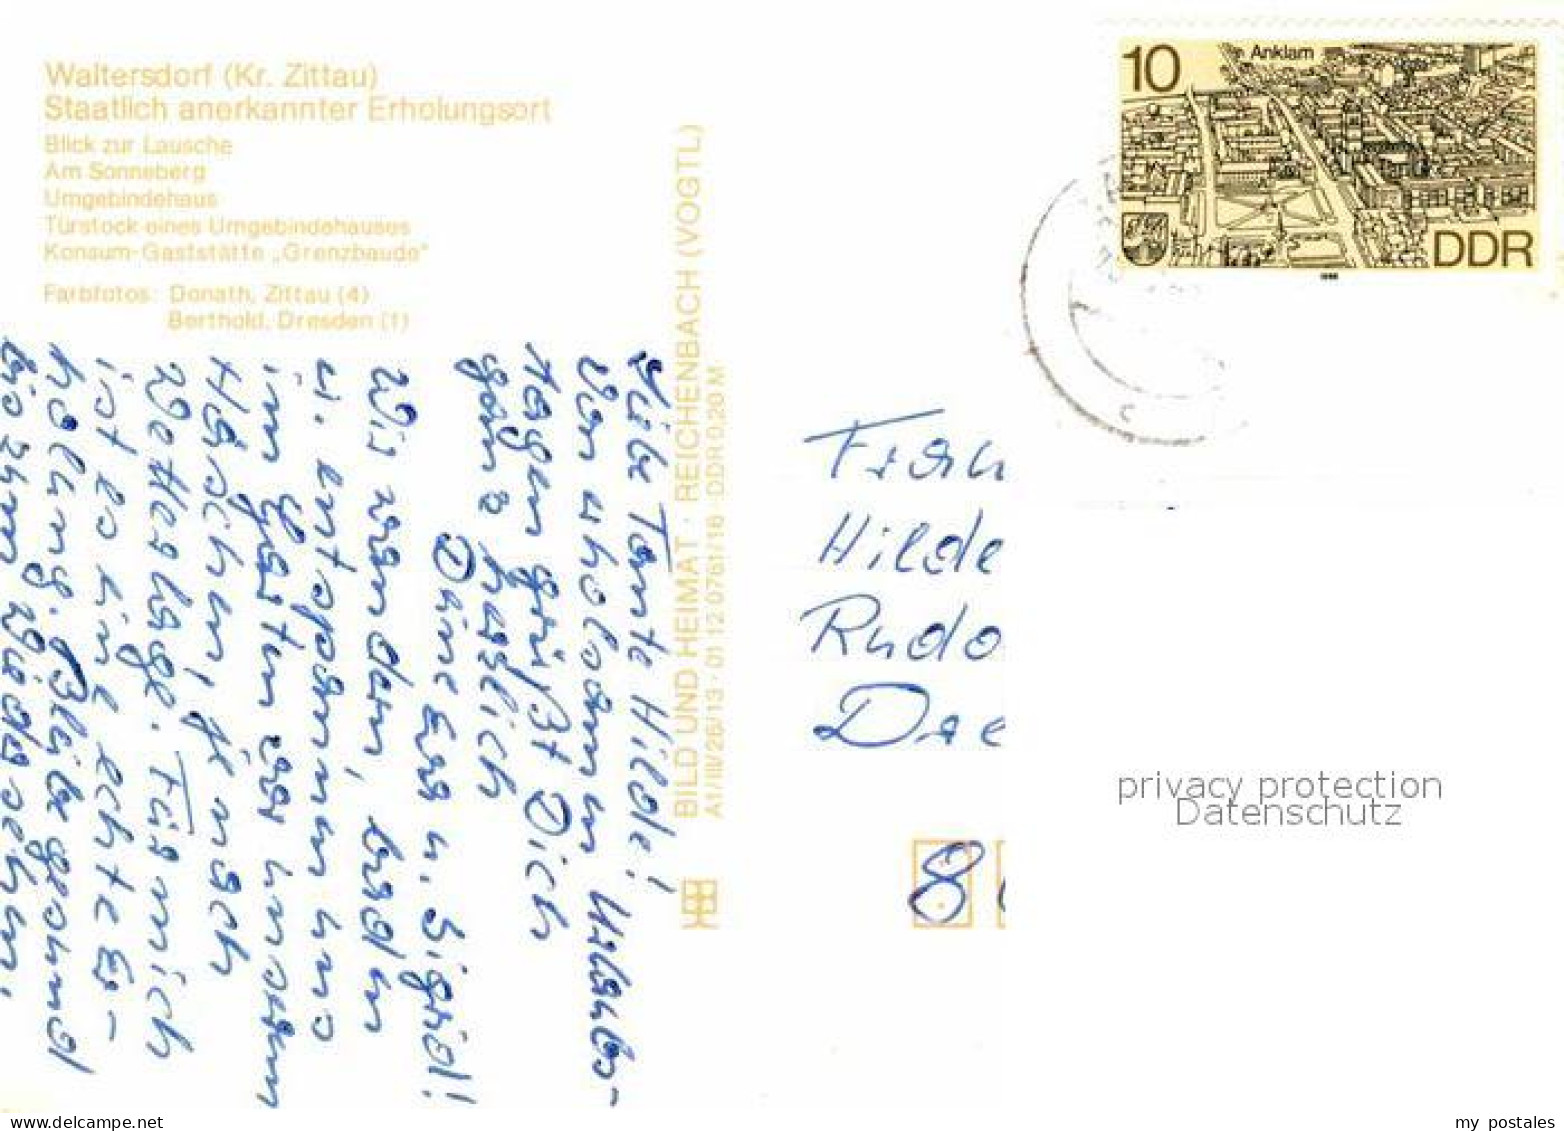 Waltersdorf (Kr. Zittau)
Staatlich anerkannter Erholungsort
Blick zur Lausche
Am Sonneberg
Umgebindehaus
Türstock eines Umgebindehauses
Konsum-Gaststätte „Grenzbaude"
Farbfotos: Donath, Zittau (4)
Berthold, Dresden (1)
BILD UND HEIMAT · REICHENBACH (VOGTL)
A1/III/26/13 · 01 12 0761/16 · DDR 0,20 M
Liebe Tante Hilde!
Von erholsamen Urlaubs-
tagen grüßt Dich
ganz herzlich
Deine Eva u. Sigrid!
Wir wandern, baden
u. entspannen uns
im Garten vor unserem
Häschen, je nach
Wetterlage. Für mich
ist es eine echte Er-
holung. Bleibe gesund
bis zum Wiedersehen!
10
Anklam
DDR
1988
Frau
Hilde
Rudo
D
8
privacy protection
Datenschutz
my postales